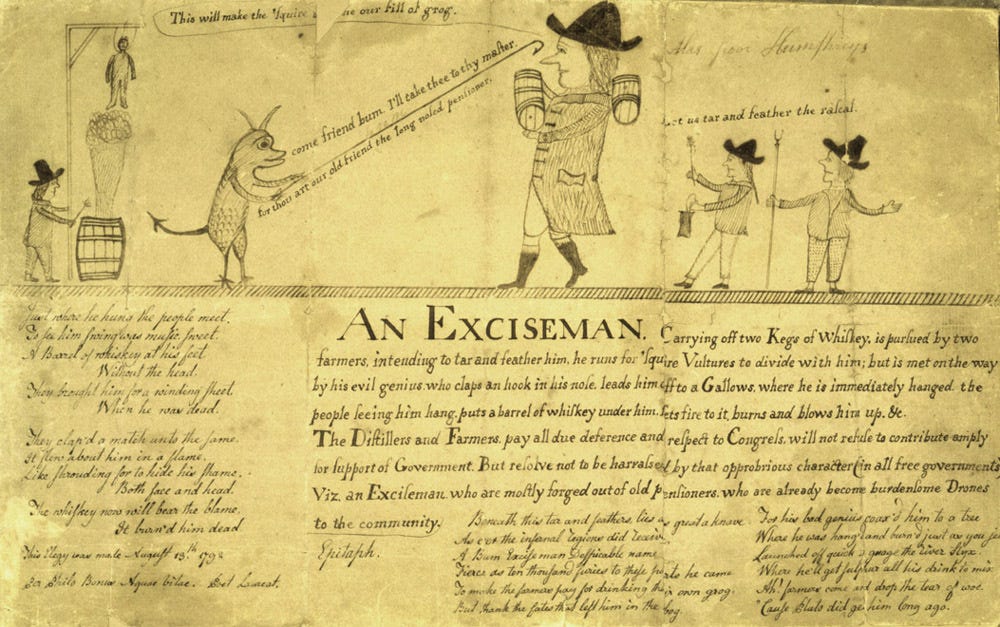 This will make the 'Squire our fill of grog.
come friend bum. I'll take thee to thy maſter.
for thou art our old friend the long noſed penſioner.
Alas poor Humphreys
Let us tar and feather the raſcal.
AN EXCISEMAN.
Carrying off two Kegs of Whiſkey, is purſued by two
farmers, intending to tar and feather him, he runs for 'Squire Vultures to divide with him; but is met on the way
by his evil genius who claps an hook in his noſe, leads him off to a Gallows, where he is immediately hanged. the
people ſeeing him hang, puts a barrel of whiſkey under him, ſets fire to it, burns and blows him up. &c.
The Diſtillers and Farmers, pay all due deference and reſpect to Congreſs, will not refuſe to contribute amply
for ſupport of Government. But reſolve not to be harraſsed by that opprobrious character (in all free governments
Viz. an Exciſeman, who are moſtly forged out of old penſioners, who are already become burdenſome Drones
to the community.
Just where he hung the people meet.
To ſee him ſwing was muſic ſweet.
A Barrel of whiskey at his feet
Without the head.
They brought him for a winding ſheet
When he was dead.
They clap'd a match unto the ſame.
It flew about him in a flame.
Like ſhrouding for to hide his ſhame.
Both face and head.
The whiſkey now will bear the blame.
It burn'd him dead
This Elegy was made August 13th 179
Philo Bonus Aquae Vitae. Poet Laureat.
Epitaph.
Beneath this tar and feathers, lies as great a knave
As e'er the infernal legions did receive
A Bum Exciſeman deſpicable name
Fierce as ten thouſand furies to theſe parts he came
To make the farmers pay for drinking their own grog.
But thank the fates that left him in the bog.
For his bad genius coax'd him to a tree
Where he was hang'd and burn'd just as you ſee
Launched off quick guage the River Styx.
Where he'll get ſulphur all his drink to mix
Ah! farmers come and drop the tear of woe.
'Cauſe Pluto did get him long ago.